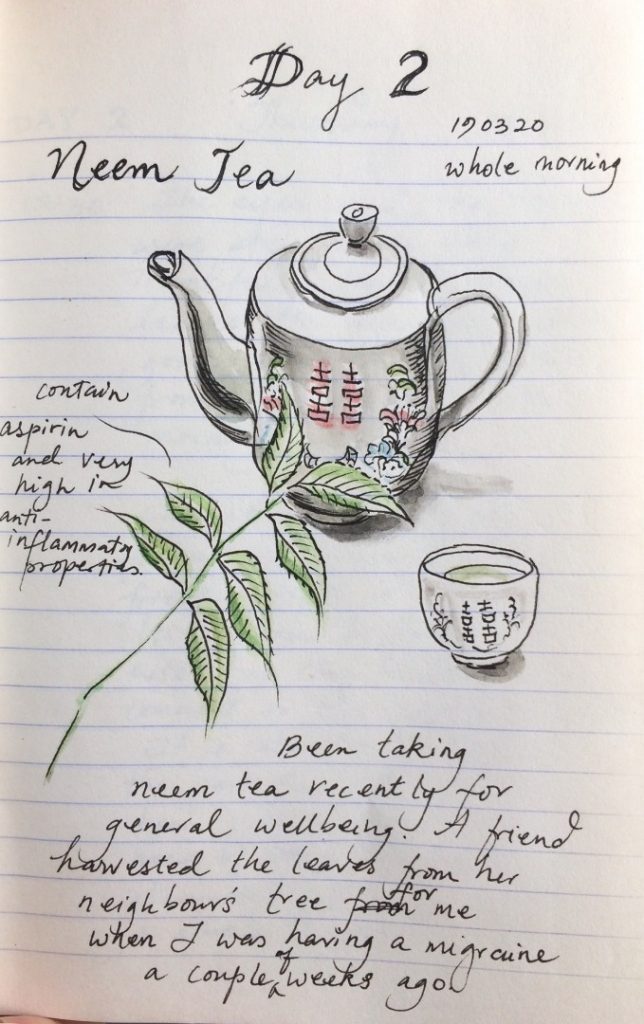 Day 2
190320
whole morning
Neem Tea
囍
contain
aspirin
and very
high in
anti-
inflammatory
properties.
囍
Been taking
neem tea recently for
general wellbeing. A friend
harvested the leaves from her
neighbour's tree for me
when I was having a migraine
a couple of weeks ago